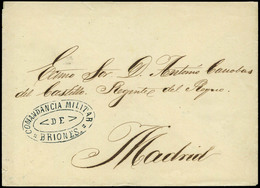 Excmo Sor D. Antonio Canovas
del Castillo Regente del Reyno.
Madrid
COMANDANCIA MILITAR
DE
BRIONES